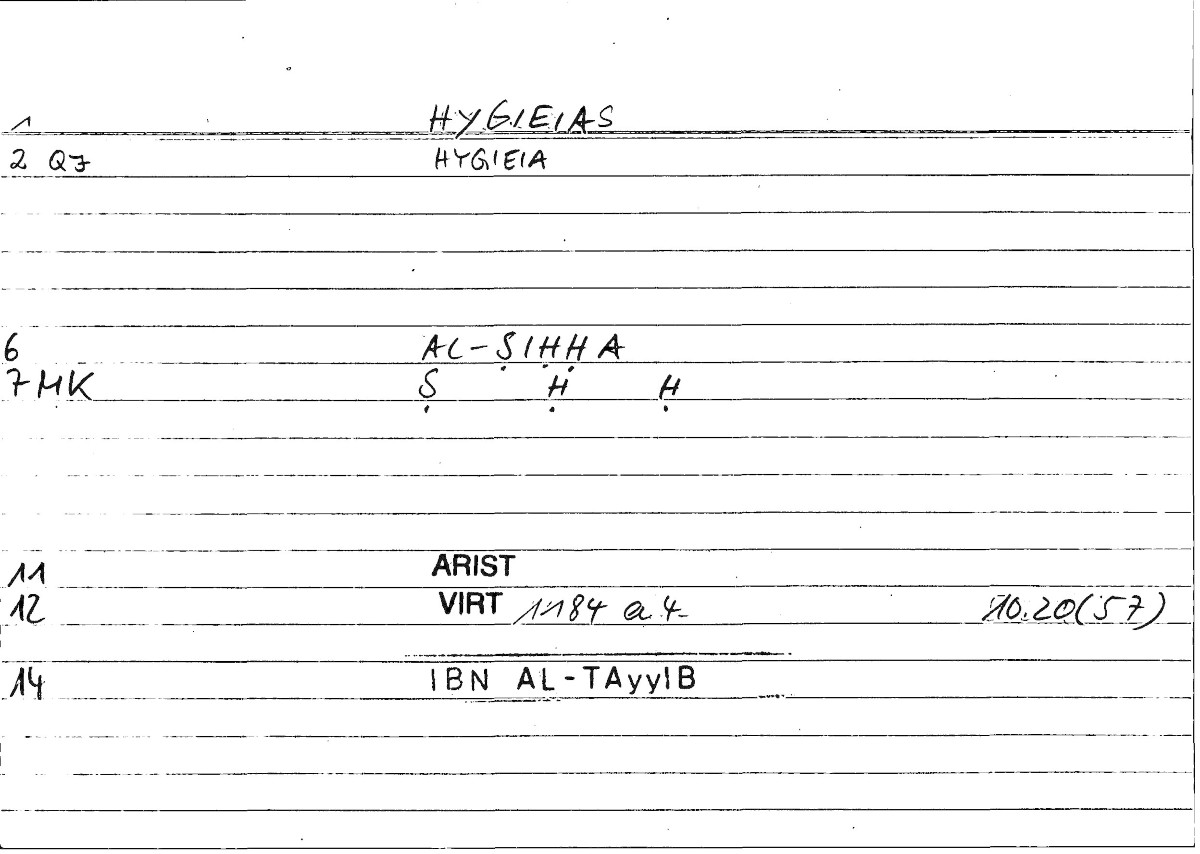 1 HYGIEIAS
2 Q7 HYGIEIA
6 AL-ṢIḤḤA
7 MK Ṣ Ḥ Ḥ
11 ARIST
12 VIRT 1184 a 4 10.20(57)
14 IBN AL-TAyyIB